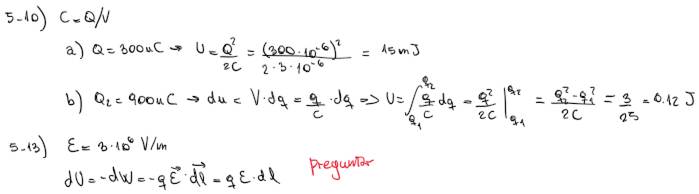 5-10) C=Q/V
a) Q=300uC → U=Q²/2C = (300·10⁻⁶)²/2·3·10⁻⁶ = 15mJ
b) Q₂=900uC → du = V·dq = q/C·dq => U=∫_{q₁}^{q₂} q/C dq = q²/2C |_{q₁}^{q₂} = (q₂²-q₁²)/2C = 3/25 = 0.12 J
5-13) E=3·10⁶ V/m
dU=-dW=-qE⃗·dl⃗=qE·dl preguntar